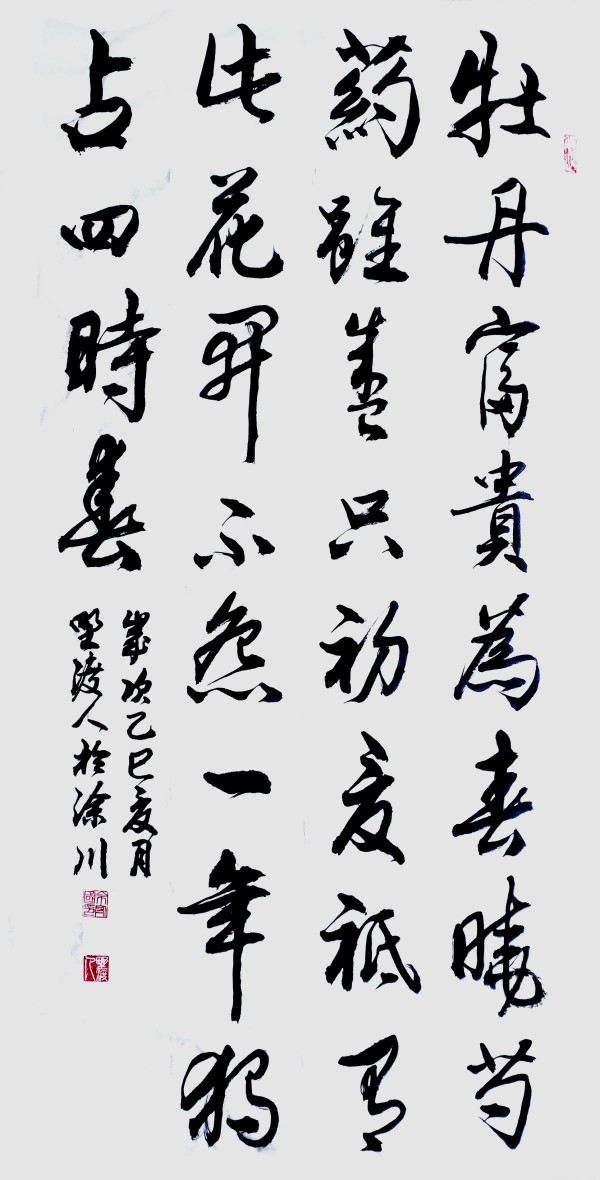 牡丹富貴為春晚芍
藥雖盛只初夏祗有
此花開不怨一年獨
占四時春
歲次乙巳夏月
野渡人於涂川